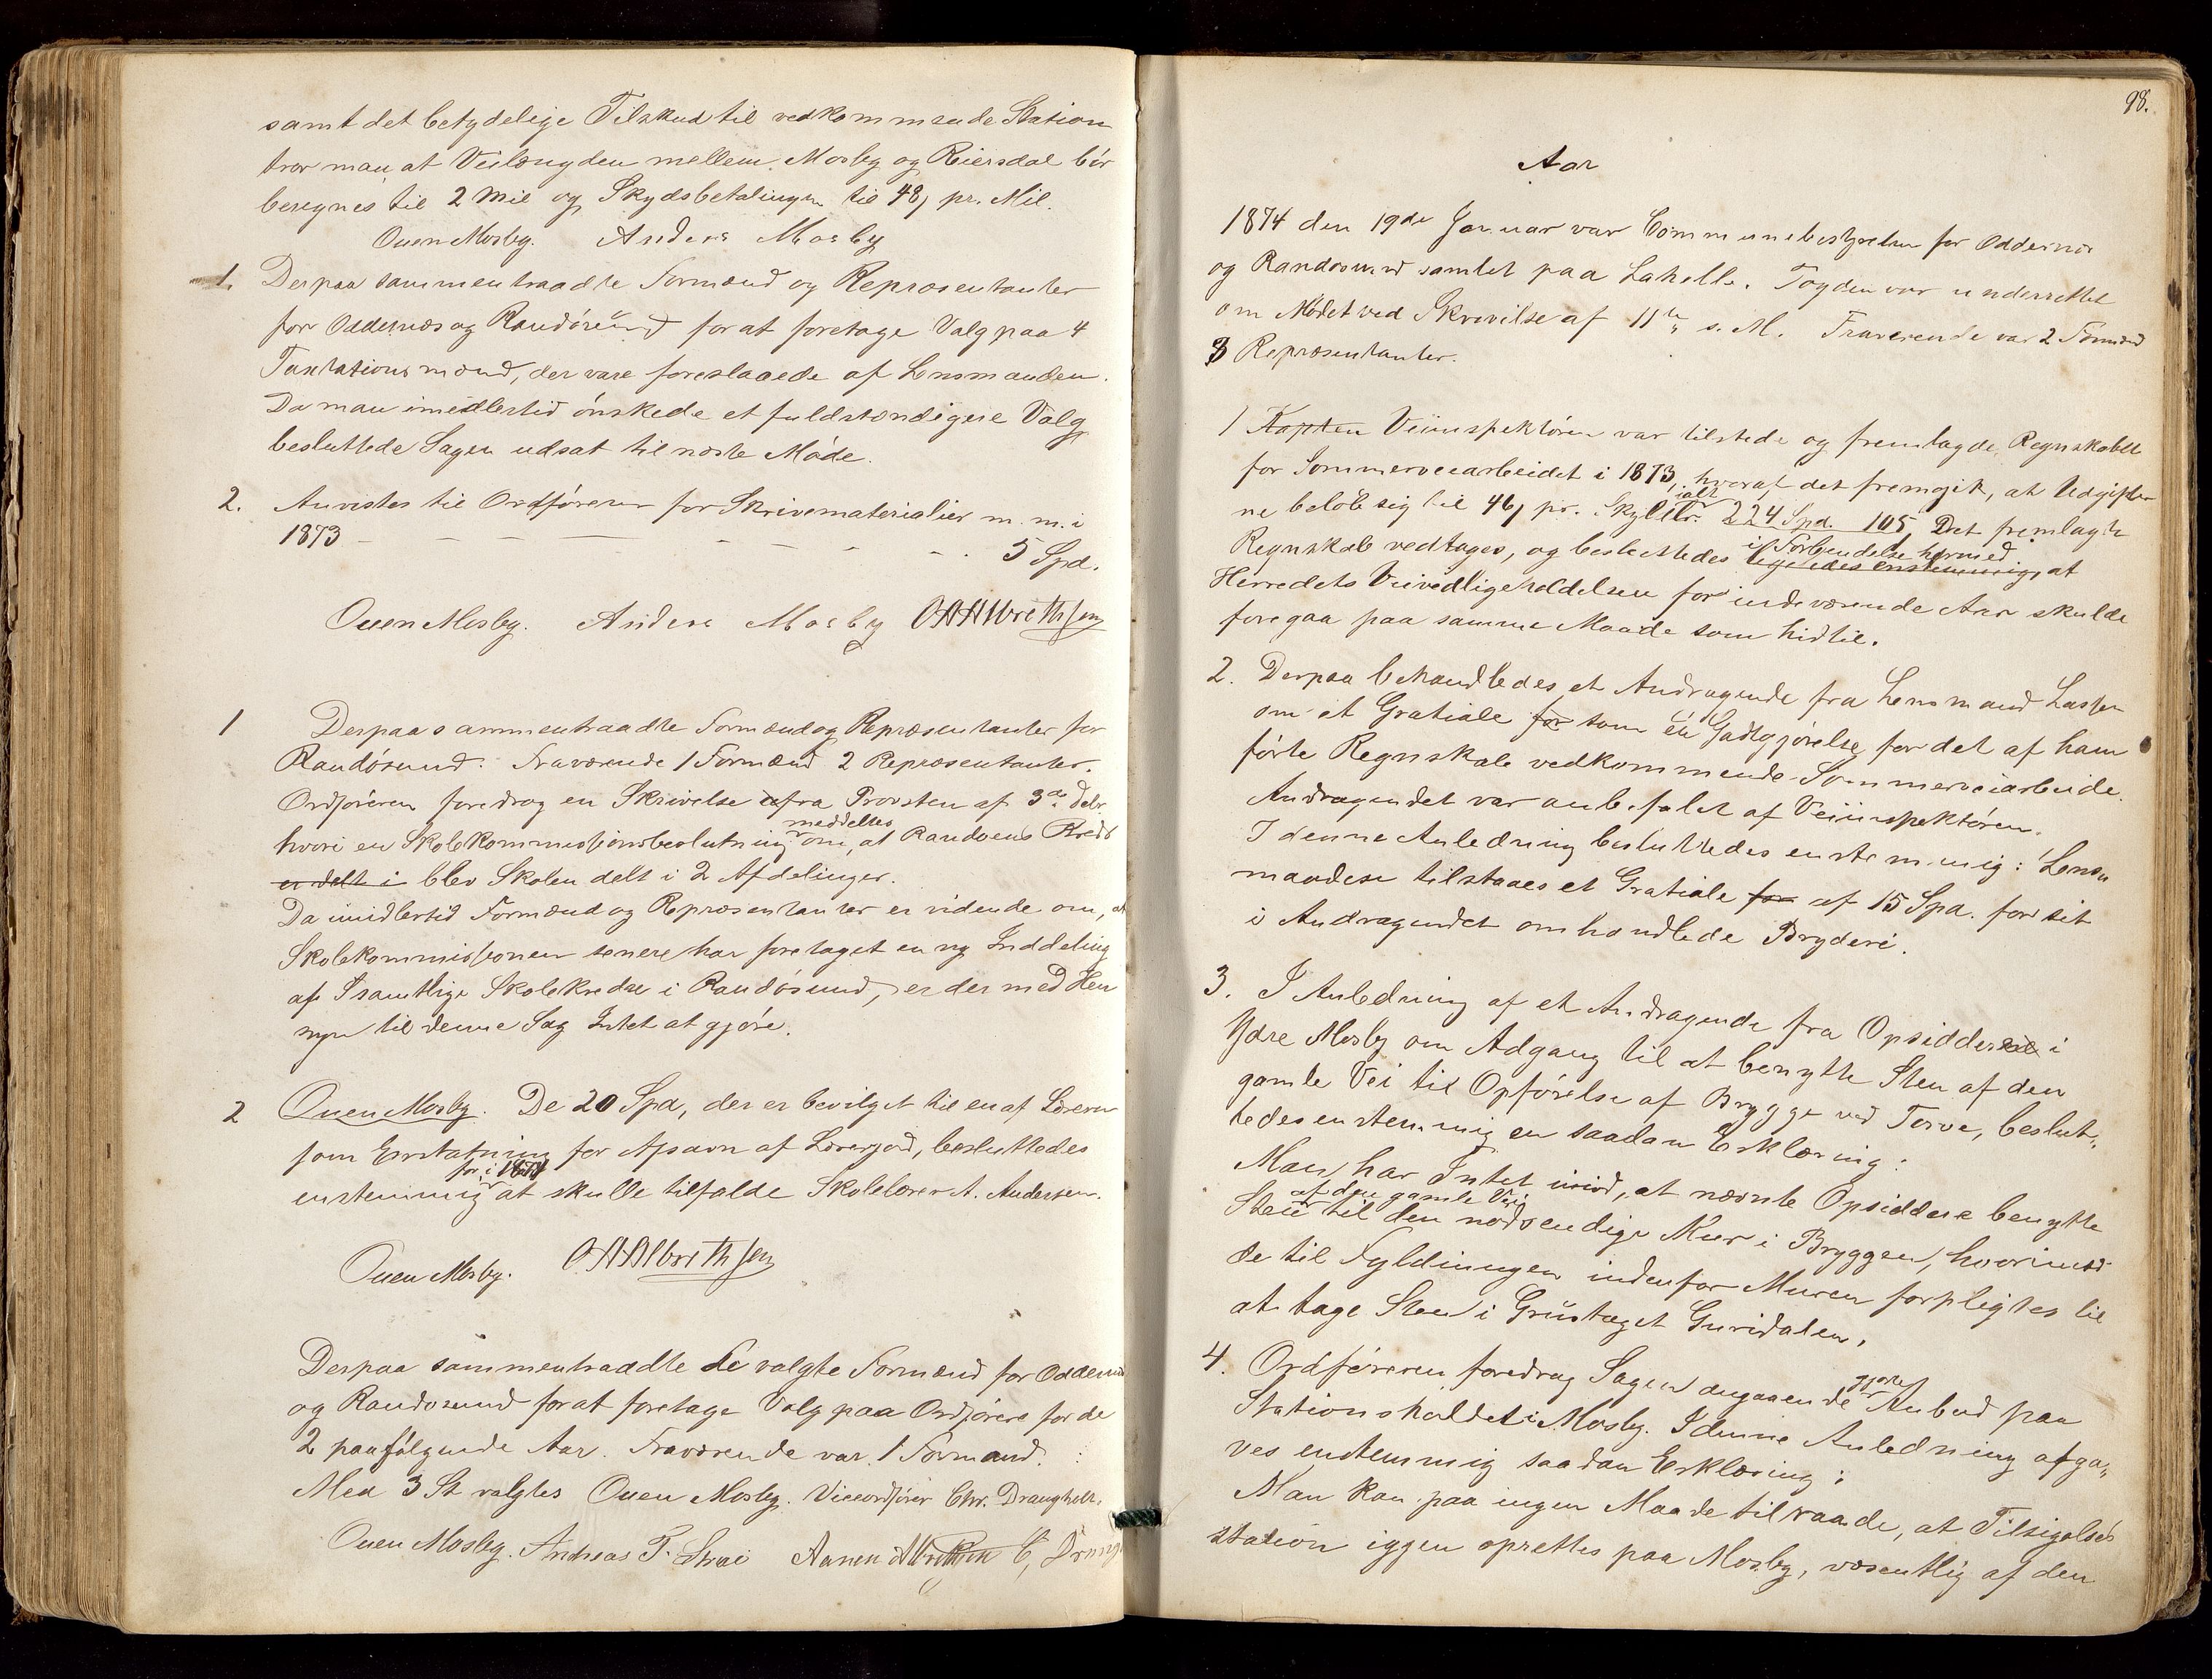 samt det betydelige Tilskud til vedkommende Station
tror man at Veilængden mellem Mosby og Reiersdal bör
beregnes til 2 Mil og Skydsbetalingen til 48 pr. Mil.
Ouen Mosby. Anders Mosby
1. Derpaa sammentraadte Formænd og Repræsentanter
for Oddernæs og Randösund for at foretage Valg paa 4
Taxtationsmænd, der vare foreslaaede af Lensmanden.
Da man imidlertid önskede et fuldstændigere Valg
besluttede Sagen udsat til næste Möde.
2. Anvistes til Ordföreren for Skrivematerialier m. m. i
1873 - - - - - - - 5 Spd.
Ouen Mosby. Anders Mosby OAAlbrethsen
1 Derpaa sammentraadte Formænd og Repræsentanter for
Randösund. Fraværende 1 Formænd 2 Repræsentanter.
Ordföreren foredrog en Skrivelse fra Provsten af 3de Debr.
meddeltes
hvori en Skolekommissionsbeslutning om, at Randöens Kreds
er delt i blev Skolen delt i 2 Afdelinger.
Da imidlertid Formænd og Repræsentanter er vidende om, at
Skolekommissionen senere har foretaget en ny Inddeling
af samtlige Skolekredse i Randösund, er der med Hen
syn til denne Sag Intet at gjöre.
2 Ouen Mosby. De 20 Spd, der er bevilget til en af Lærerne
som Erstatning for Afsavn af Lærerjord, besluttedes
for i 1874
enstemmig at skulle tilfalde Skolelærer A. Andersen.
Ouen Mosby. OAAlbrethsen
Derpaa sammentraadte de valgte Formænd for Oddernæs
og Randösund for at foretage Valg paa Ordförere for de
2 paafölgende Aar. Fraværende var 1 Formand.
Med 3 St valgtes Ouen Mosby. Viceordförer Chr. Drangholt.
Ouen Mosby. Andreas T. Strai Aanen Albrethsen C, Drang
98.
Aar
1874 den 19de Januar var Communebestyrelsen for Oddernæs
og Randösund samlet paa Lahelle. Togden var underrettet
om Mödet ved Skrivelse af 11te s. M. Fraværende var 2 Formænd
3 Repræsentanter.
1 Kapten Veiinspektören var tilstede og fremlagde Regnskabet
for Sommerveiarbeidet i 1873, hvoraf det fremgik, at Udgifter
ialt
ne belöb sig til 46 pr. Skylddlr. 224 Spd. 105 Det fremlagte
i Forbindelse hermed
Regnskab vedtages, og besluttedes ligeledes enstemmig, at
Herredets Veivedligeholdelsen for indeværende Aar skulde
foregaa paa samme Maade som hidtil.
2. Derpaa behandledes et Andragende fra Lensmand Lassen
om et Gratiale for som en Godtgjörelse for det af ham
förte Regnskab vedkommende Sommerveiarbeide.
Andragendet var anbefalet af Veiinspektören.
I denne Anledning besluttedes enstemmig: Lens„
manden tilstaaes et Gratiale for af 15 Spd. for sit
i Andragendet omhandlede Bryderi.
3. I Anledning af et Andragende fra Opsiddere i
Ydre Mosby om Adgang til at benytte Sten af den
gamle Vei til Opförelse af Brygge ved Torve, beslut„
tedes enstemmig en saadan Erklæring:
Man har Intet imod, at nævnte Opsiddere benytte
af den gamle Vei
Sten til den nödvendige Mur i Bryggen, hvorimod
de til Fyldningen indenfor Muren forpligtes til
at tage Sten i Grustaget Guridalen.
4. Ordföreren foredrog Sagen angaaende
gjorte
Anbud paa
Stationsholdet i Mosby. I denne Anledning afga„
ves enstemmig saadan Erklæring:
Man kan paa ingen Maade tilraade, at Tilsigelses
station iggen oprettes paa Mosby, væsentlig af den